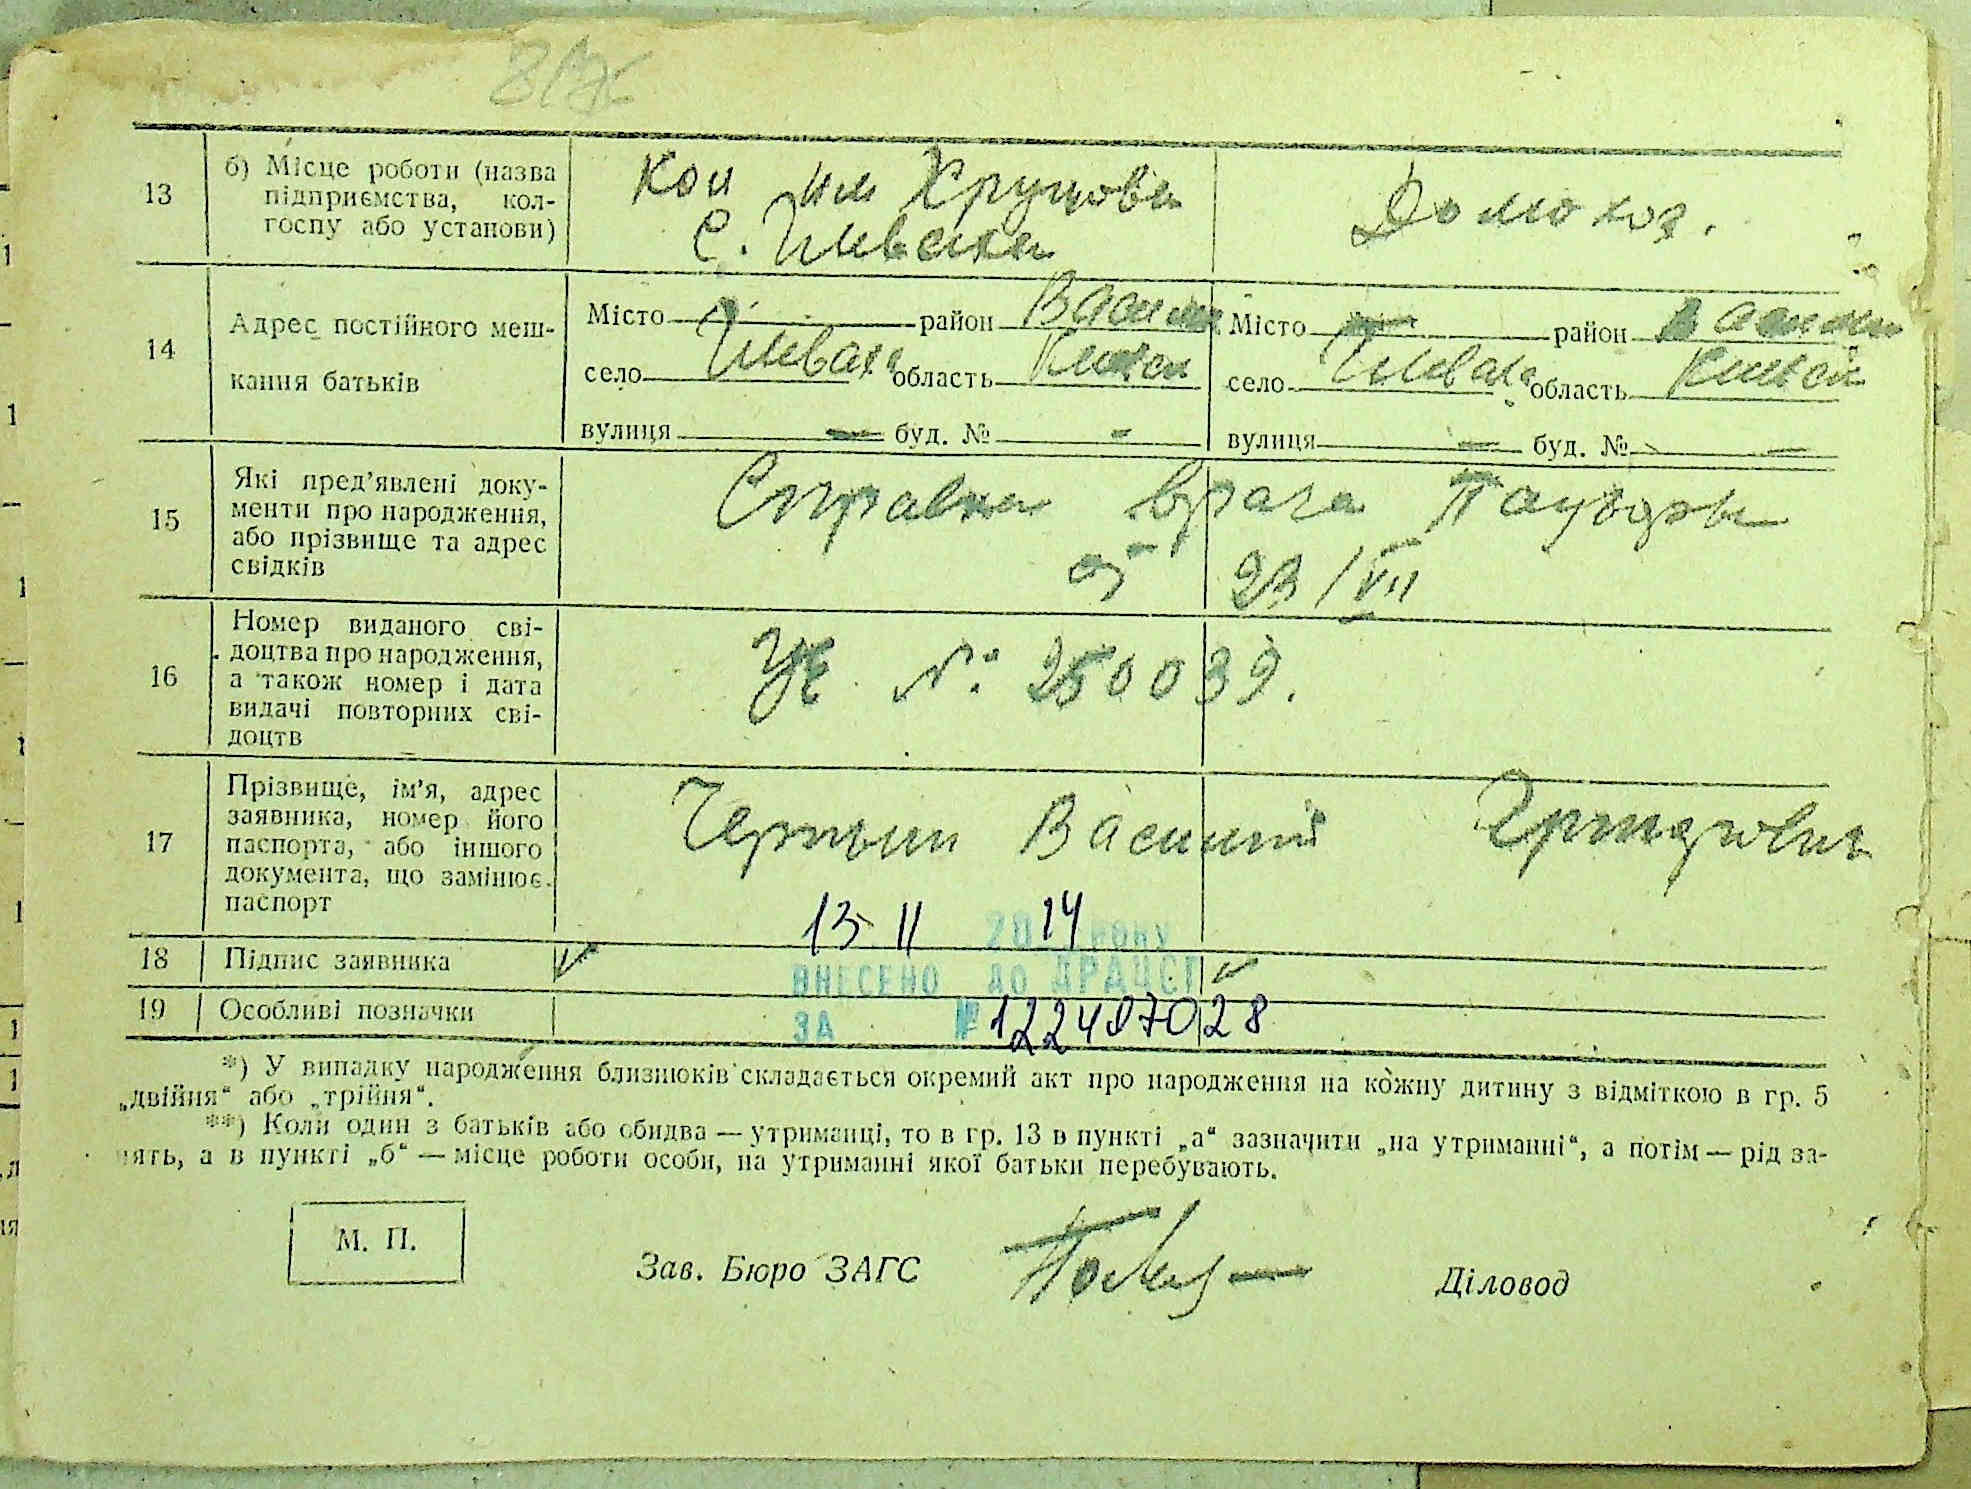 13
б) Місце роботи (назва
підприємства, кол-
госпу або установи)
Кол им Хрущова
С. Шевахи
Домохоз.
14
Адрес постійного меш-
кання батьків
Місто район Васильк
село область Киевск
вулиця — буд. № -
Місто — район Васильк
село область Киевск
вулиця — буд. № —
15
Які пред’явлені доку-
менти про народження,
або прізвище та адрес
свідків
Справка врача
от 23/VII
16
Номер виданого сві-
доцтва про народження,
а також номер і дата
видачі повторних сві-
доцтв
УЕ № 250039.
17
Прізвище, ім’я, адрес
заявника, номер його
паспорта, або іншого
документа, що замінює
паспорт
Василий
13 11 2014 РОКУ
18
Підпис заявника
ВНЕСЕНО ДО ДРАЦСГ
19
Особливі позначки
ЗА № 12248707028
*) У випадку народження близнюків складається окремий акт про народження на кожну дитину з відміткою в гр. 5
„двійня“ або „трійня“.
**) Коли один з батьків або обидва — утриманці, то в гр. 13 в пункті „а“ зазначити „на утриманні“, а потім — рід за-
нять, а в пункті „б“ — місце роботи особи, на утриманні якої батьки перебувають.
М. П.
Зав. Бюро ЗАГС
Діловод